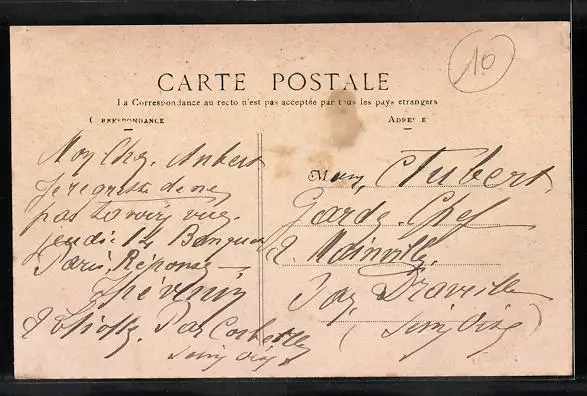 10
CARTE POSTALE
La Correspondance au recto n'est pas acceptée par tous les pays etrangers
CORRESPONDANCE
ADRESSE
Mon Cher Aubert
Je regrette de ne
pas
jeudi 14
Paris, Reponse
Thévenin
à Etiolles Par Corbeille
Seine Oise
M
Garde Chef
à Mainville
Par Draveille
(Seine Oise)